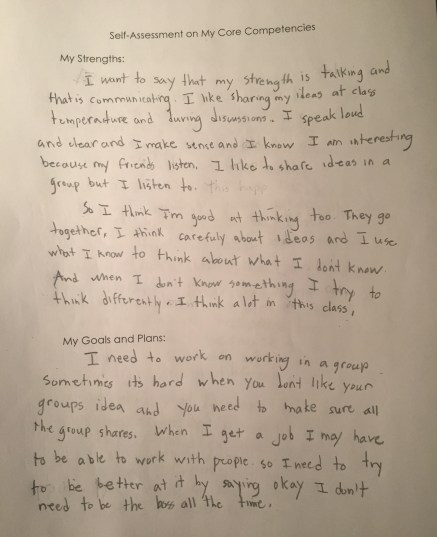 Self-Assessment on My Core Competencies
My Strengths:
I want to say that my strength is talking and
that is communicating. I like sharing my ideas at class
temperature and during discussions. I speak loud
and clear and I make sense and I know I am interesting
because my friends listen. I like to share ideas in a
group but I listen to.
So I think I'm good at thinking too. They go
together, I think carefuly about ideas and I use
what I know to think about what I dont know
And when I don't know something I try to
think differently. I think a lot in this class,
My Goals and Plans:
I need to work on working in a group.
Sometimes its hard when you dont like your
groups idea and you need to make sure all
the group shares. When I get a job I may have
to be able to work with people so I need to try
to be better at it by saying okay I don't
need to be the boss all the time.